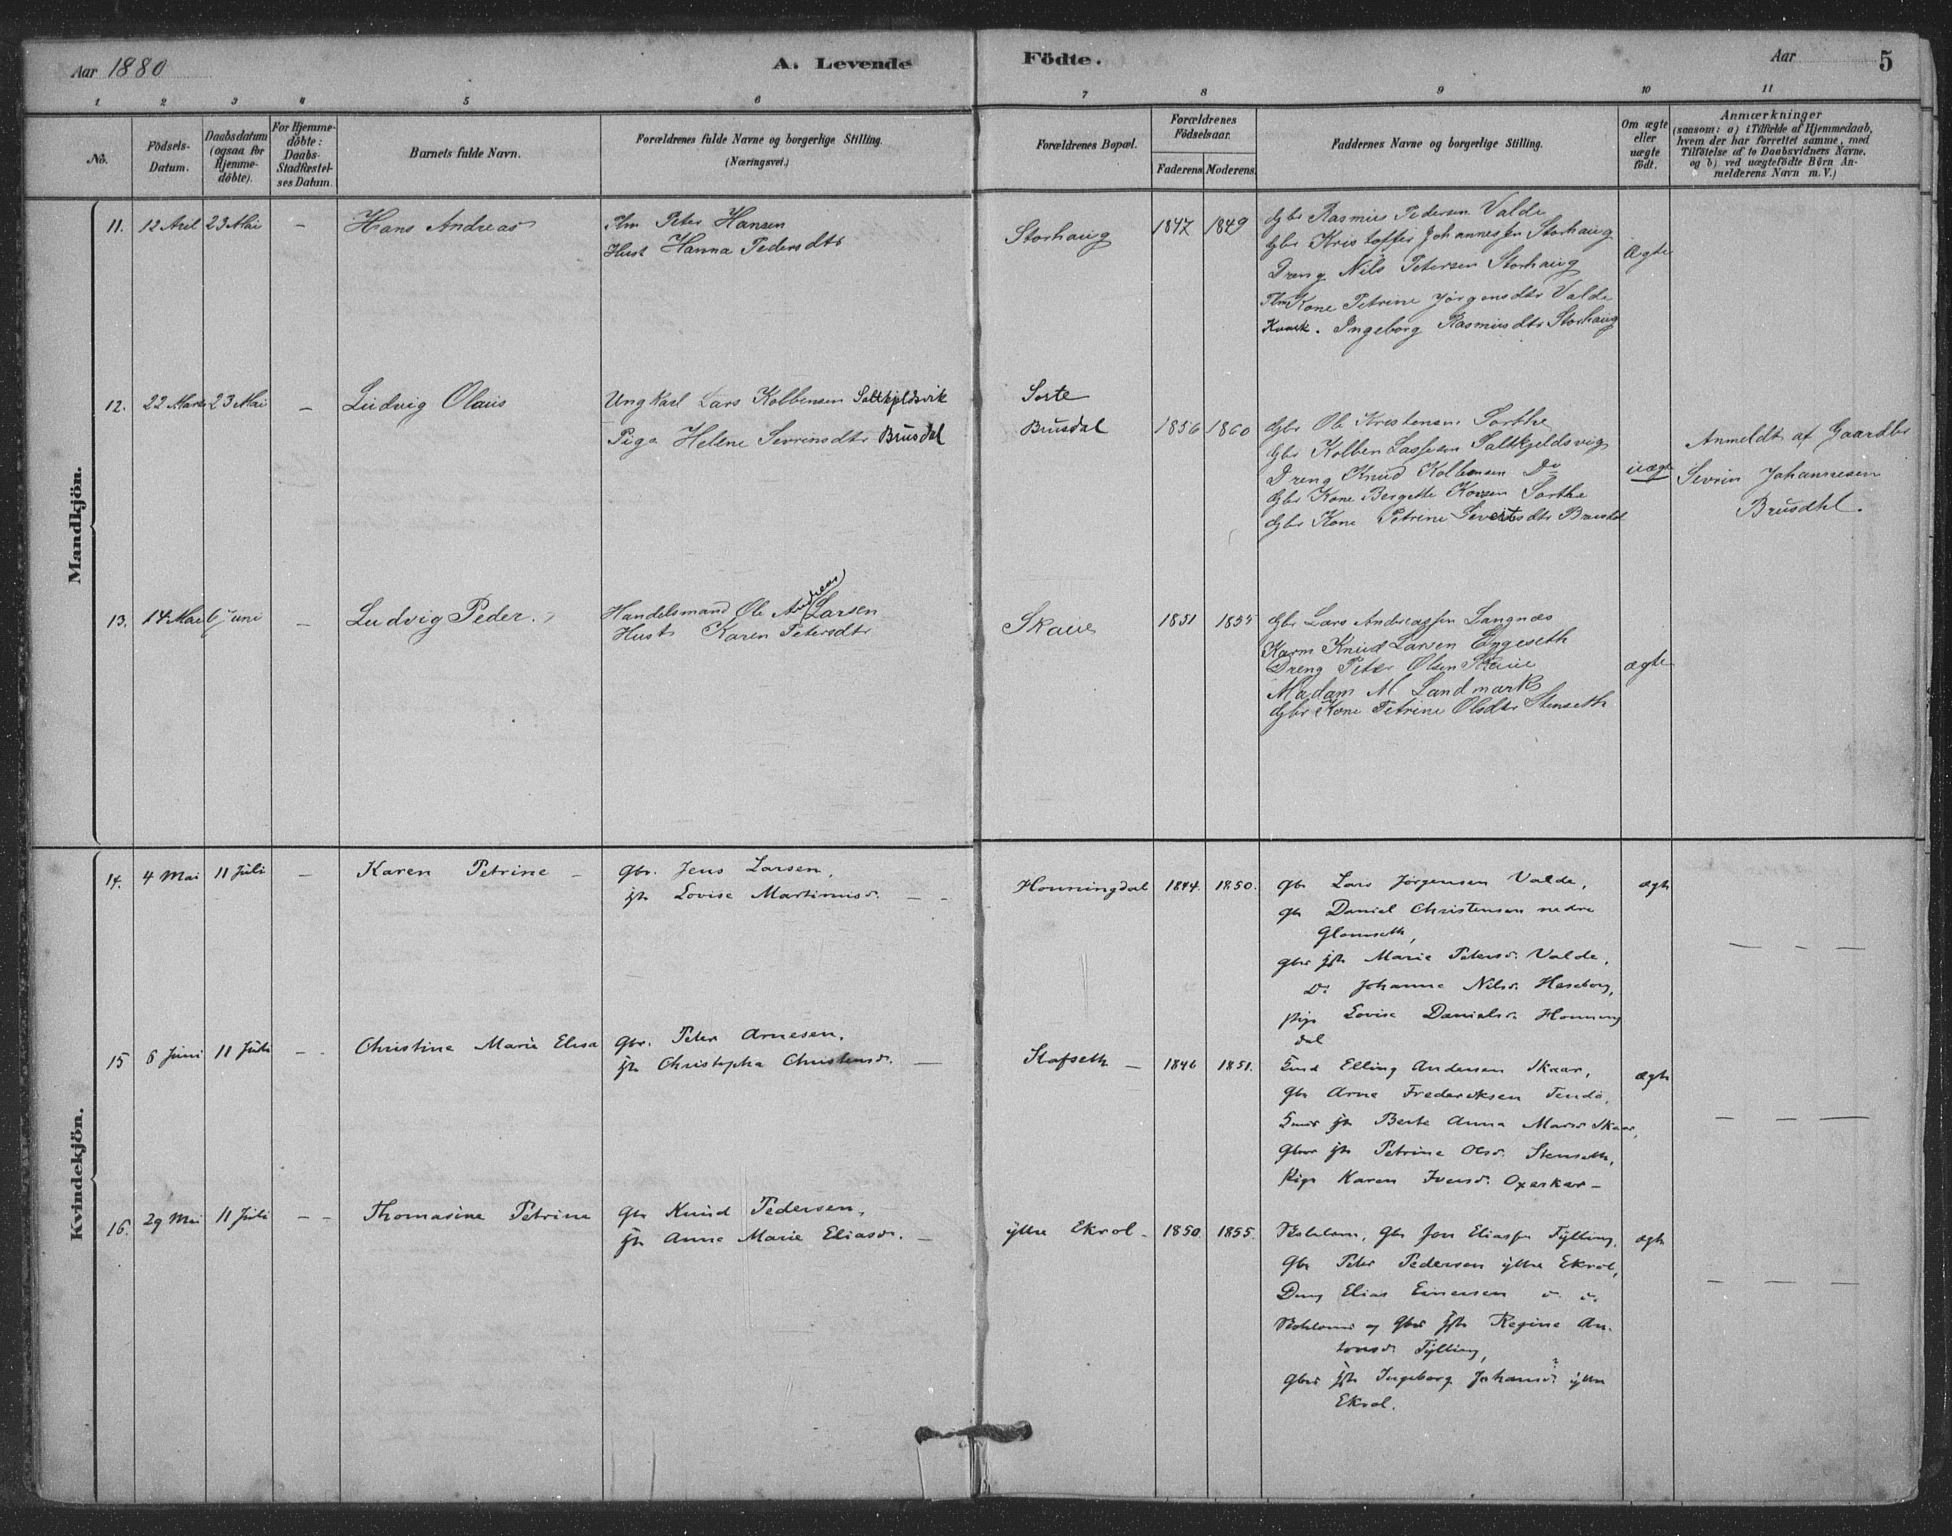 Aar 1880
A. Levende
Födte.
Aar
5
1 2 3 4 5 6 7 8 9 10 11
No.
Födsels-
Datum.
Daabsdatum
(ogsaa for
Hjemme-
döbte).
For Hjemme-
döbte:
Daabs-
Stadfæstel-
ses Datum.
Barnets fulde Navn.
Forældrenes fulde Navne og borgerlige Stilling.
(Næringsvei.)
Forældrenes Bopæl.
Forældrenes
Födselsaar.
Faderens Moderens.
Faddernes Navne og borgerlige Stilling.
Om ægte
eller
uægte
födt.
Anmærkninger
(saasom: a) i Tilfælde af Hjemmedaab,
hvem der har forrettet samme, med
Tilföielse af to Daabsvidners Navne.
og b) ved uægtefödte Börn An-
melderens Navn m. V.)
Mandkjön.
11. 12 April 23 Mai – Hans Andreas
Peter Hansen
Hust Hanna Pedersdtr
Storhaug 1847 1849
Gbr Rasmus Pedersen Valde
Gbr Kristoffer Johannessen Storhaug
Dreng Nils Petersen Storhaug
Kone Petrine Jørgensdtr Valde
Ingeborg Rasmusdtr Storhaug
Ægte
12. 22 Marts 23 Mai – Ludvig Olaus
Ungkarl Lars Kolbensen Saltkjeldsvik
Pige Helene Sevrinsdtr Brusdal
Sorte
Brusdal 1856 1860
Gbr Ole Kristensen Sorthe
Gbr Kolben Lassesen Saltkjeldsvig
Dreng Knud Kolbensen Do
Gbr Kone Bergette Sorthe
Gbr Kone Petrine Severtsdtr Brusdal
uægte
Anmeldt af Gaardbr
Sevrin Johannesen
Brusdal.
13. 14 Mai 6 Juni – Ludvig Peder.
Handelsmand Ole Andreas Larsen
Hust Karen Petersdtr
Skaue 1851 1855
Gbr Lars Andreassen Langnæs
Knud Larsen Eggeseth
Dreng Peter Olsen Skaue
Madam M Landmark
Gbr Kone Petrine Olsdtr Stenseth
ægte
Kvindekjön.
14. 4 Mai 11 Juli – Karen Petrine –
Gbr. Jens Larsen,
Lovise Martinusd. – –
Honningdal 1844. 1850.
Gbr Lars Jörgensen Valde,
Gbr Daniel Christensen nedre
Glomseth,
Gbr Marie Petersd. Valde,
Do Johanne Nilsd. Haseborg,
Pige Lovise Danielsd. Honning
dal
ægte
– – –
15 6 Juni 11 Juli – – Christine Marie Elisa
Gbr. Peter Arnesen,
Christopha Christensd. –
Stafseth – 1846 1851.
Elling Andersen Skaar,
Gbr Arne Frederiksen Tendö,
Berte Anna Marie Skaar,
Petrine Olsd. Stenseth,
Pige Karen Iversd. Oxerkar –
ægte
– – –
16. 29 Mai 11 Juli – – Thomasine Petrine
Gbr Knud Pedersen,
Anne Marie Eliasd. –
ytre Ekrol – 1850 1855.
Gbr Jon Eliassen Fylling,
Gbr Peter Pedersen ytre Ekrol,
Dreng Elias Einersen
og Gbr Regine An-
tonsd. Fylling,
Ingeborg Johansd. ytre
Ekrol.
ægte
– – –